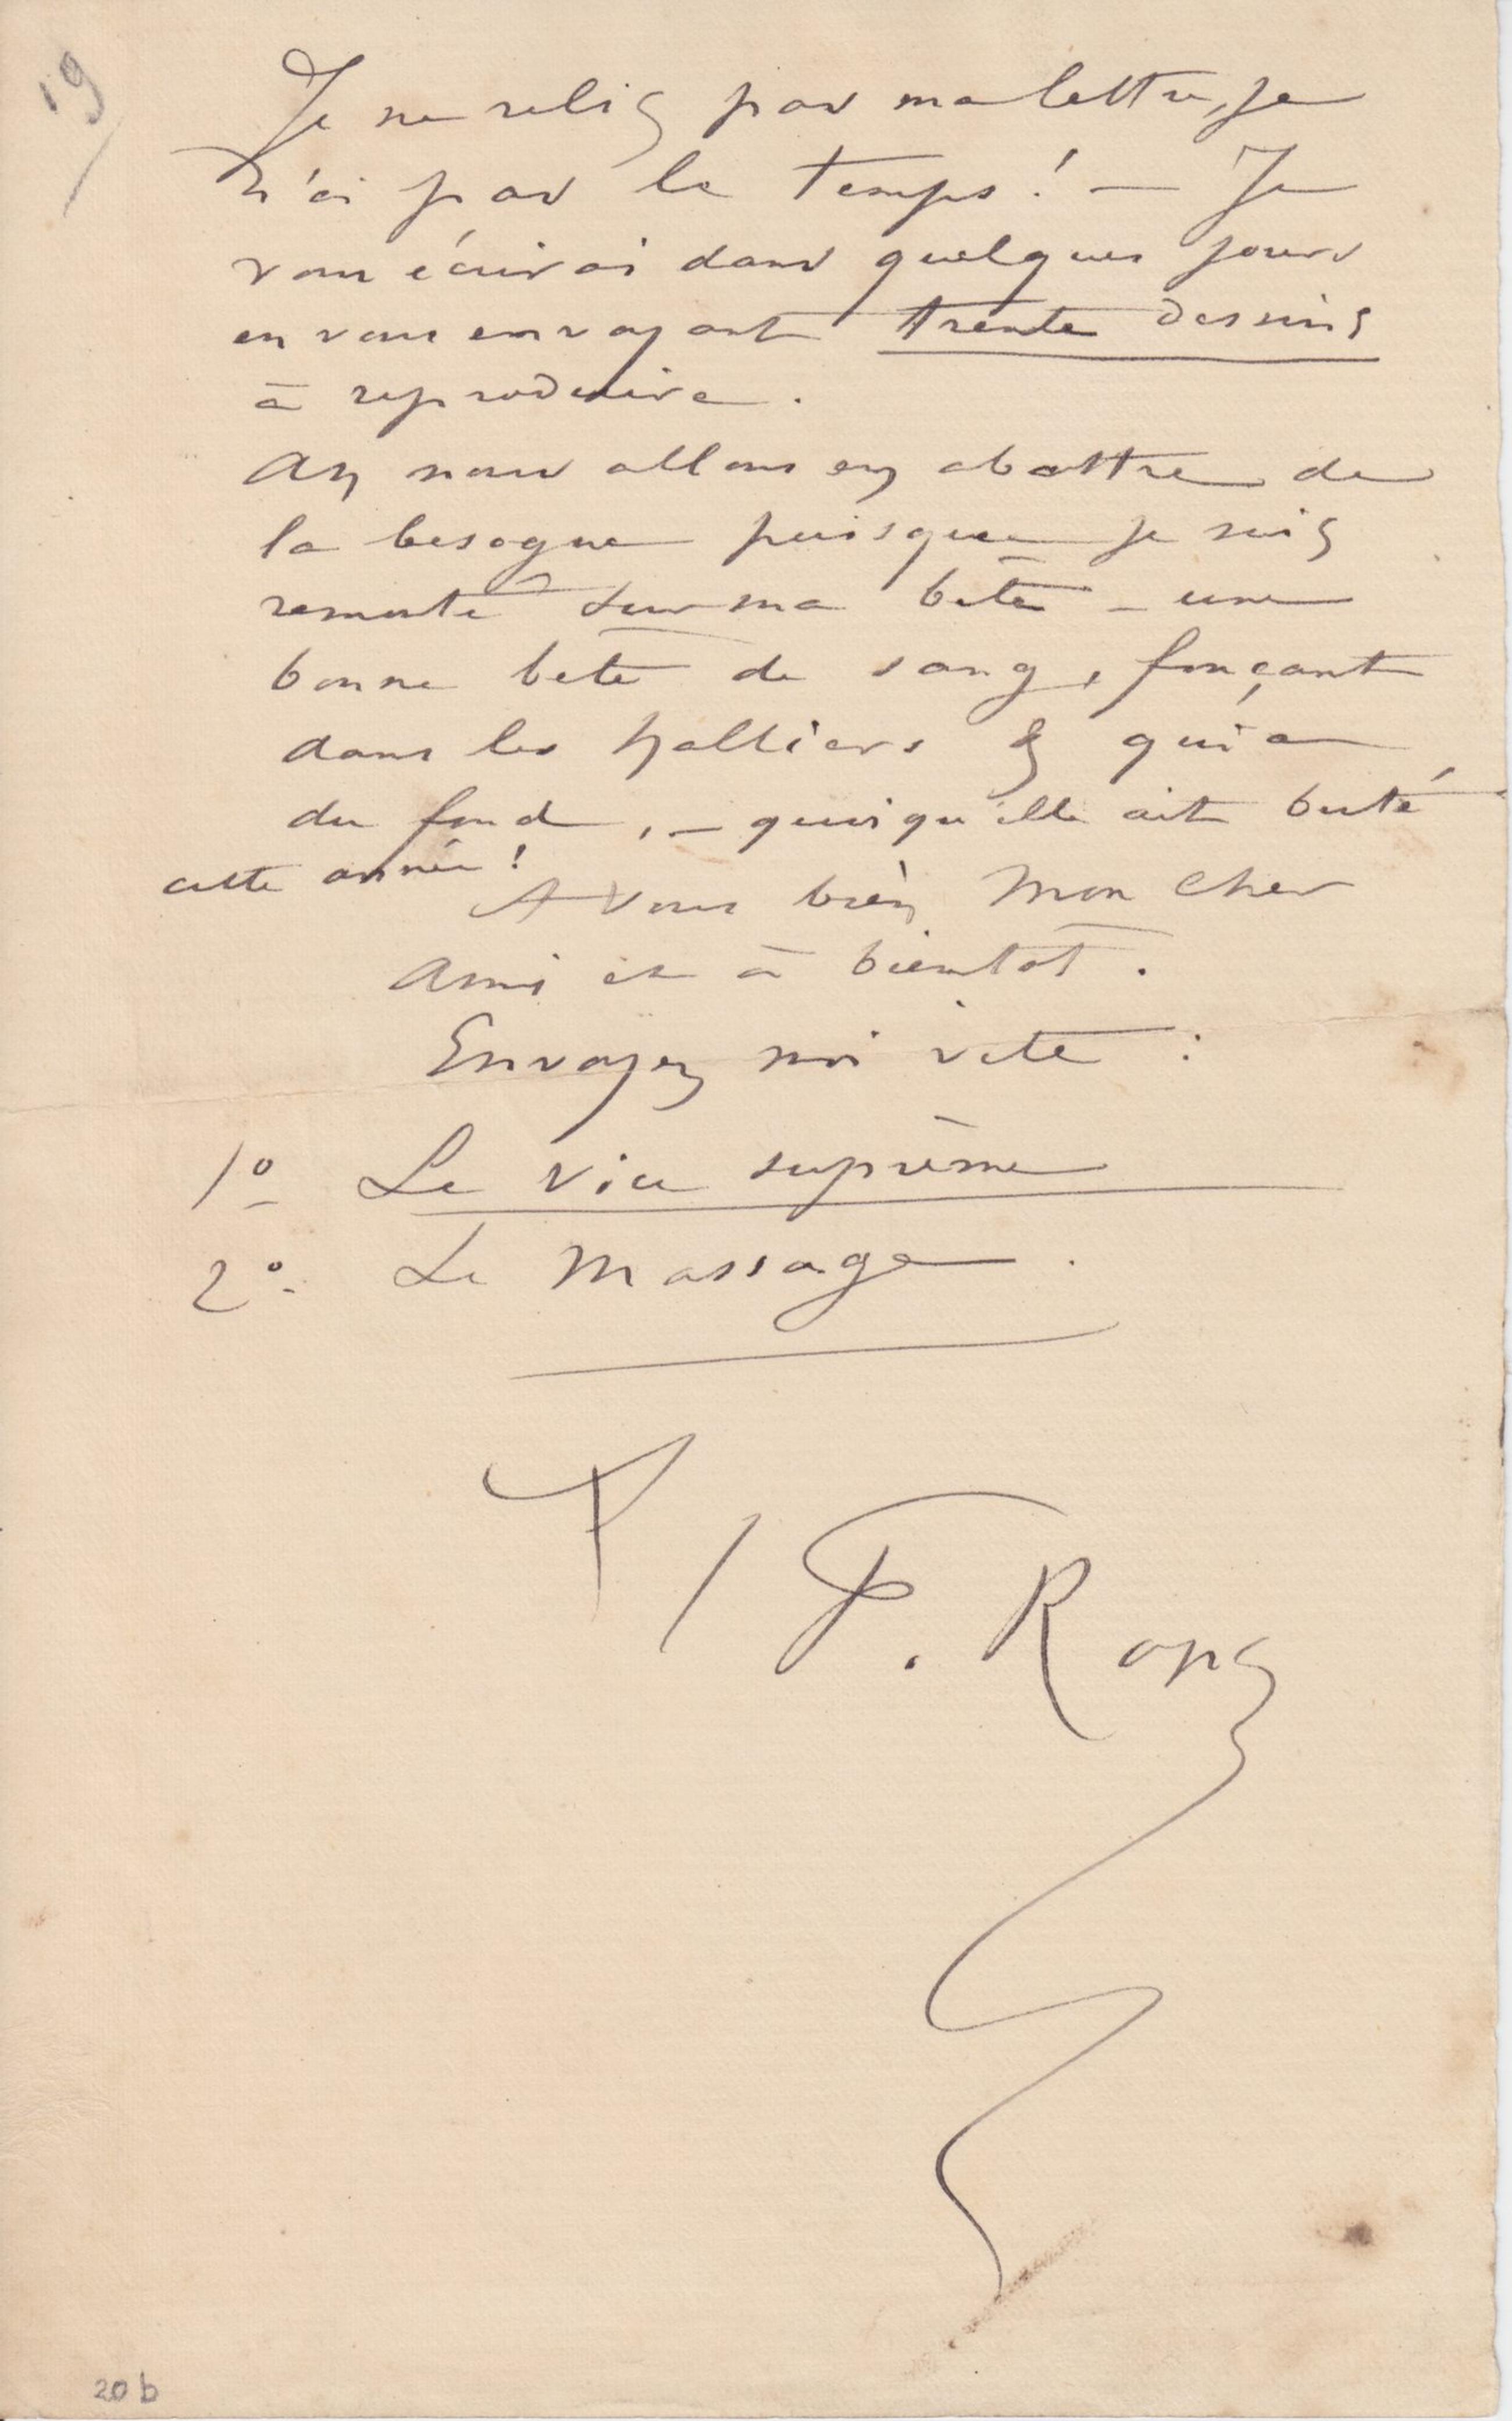 19
Je ne relis pas ma lettre, je
n'ai pas le temps ! — Je
vous écrirai dans quelques jours
en vous envoyant trente dessins
à reproduire.
Ah nous allons en abattre de
la besogne puisque je suis
remonté sur ma bête – une
bonne bête de sang, fonçant
dans les halliers & qui a
du fond, – quoiqu'elle ait buté
cette année !
A vous bien Mon Cher
Ami et à bientôt.
Envoyez moi vite :
1º Le Vice suprême
2º Le Massage.
F. Rops
20b